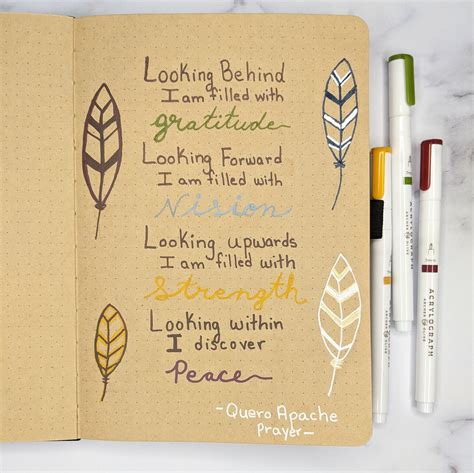 Looking Behind
I am filled with
gratitude
Looking Forward
I am filled with
Vision
Looking upwards
I am filled with
Strength
Looking within
I discover
Peace
-Quero Apache
Prayer-
ACRYLOGRAPH
ARCHER & OLIVE
ACRYLOGRAPH
ARCHER & OLIVE